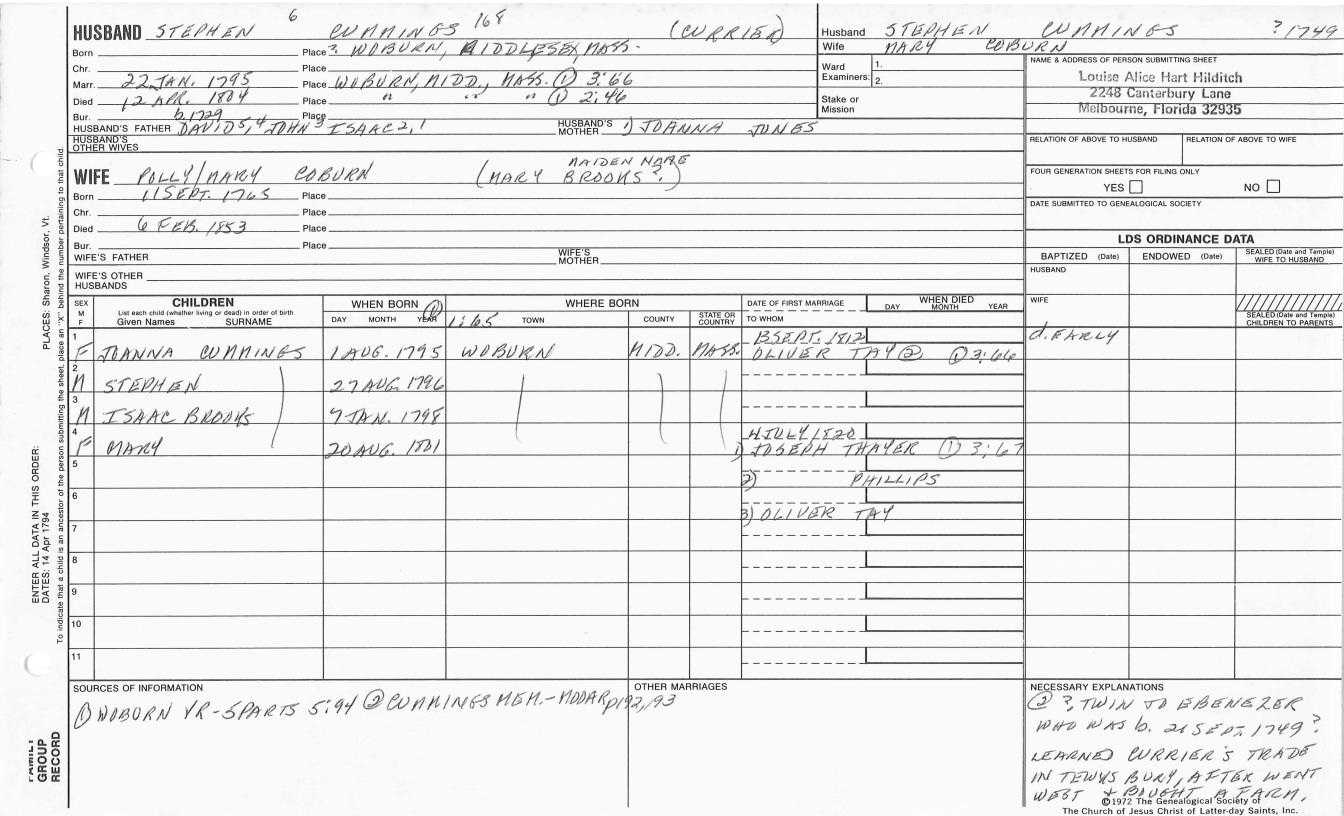 6 168
HUSBAND STEPHEN CUMMINGS (CURRIER)
Born Place ? WOBURN, MIDDLESEX, MASS.
Chr. Place
Marr. 22 JAN. 1795 Place WOBURN, MIDD., MASS. ① 3:66
Died 12 APR. 1804 Place " " " ① 2:46
Bur. Place
b.1729
HUSBAND'S FATHER DAVID 5, 4 JOHN 3 ISAAC 2, 1 HUSBAND'S MOTHER 1) JOANNA JONES
HUSBAND'S OTHER WIVES
Husband STEPHEN CUMMINGS ? 1749
Wife MARY COBURN
Ward Examiners: 1.
2.
Stake or Mission
NAME & ADDRESS OF PERSON SUBMITTING SHEET
Louise Alice Hart Hilditch
2248 Canterbury Lane
Melbourne, Florida 32935
RELATION OF ABOVE TO HUSBAND RELATION OF ABOVE TO WIFE
FOUR GENERATION SHEETS FOR FILING ONLY
YES NO
DATE SUBMITTED TO GENEALOGICAL SOCIETY
MAIDEN NAME
WIFE POLLY/MARY COBURN (MARY BROOKS?)
Born 11 SEPT. 1765 Place
Chr. Place
Died 6 FEB. 1853 Place
Bur. Place
WIFE'S FATHER WIFE'S MOTHER
WIFE'S OTHER HUSBANDS
LDS ORDINANCE DATA
BAPTIZED (Date) ENDOWED (Date) SEALED (Date and Temple) WIFE TO HUSBAND
HUSBAND
WIFE
SEALED (Date and Temple) CHILDREN TO PARENTS
SEX M F CHILDREN
List each child (whether living or dead) in order of birth
Given Names SURNAME
WHEN BORN
DAY MONTH YEAR ① 1:65
WHERE BORN
TOWN COUNTY STATE OR COUNTRY
DATE OF FIRST MARRIAGE
TO WHOM
WHEN DIED
DAY MONTH YEAR
13 SEPT. 1812
1 F JOANNA CUMMINGS 1 AUG. 1795 WOBURN MIDD. MASS. OLIVER TAY ② ① 3:66 d. EARLY
2 M STEPHEN 27 AUG. 1796
3 M ISAAC BROOKS 7 JAN. 1798
4 JULY 1820
4 F MARY 20 AUG. 1801 1) JOSEPH THAYER ① 3:67
5 2) PHILLIPS
6 3) OLIVER TAY
7
8
9
10
11
SOURCES OF INFORMATION
① WOBURN VR-5PARTS 5:94 ② CUMMINGS MEM.-MODAR p192,193
OTHER MARRIAGES
NECESSARY EXPLANATIONS
② ?, TWIN TO EBENEZER
WHO WAS b. 21 SEPT. 1749?
LEARNED CURRIER'S TRADE
IN TEWKSBURY, AFTER WENT
WEST & BOUGHT A FARM.
©1972 The Genealogical Society of
The Church of Jesus Christ of Latter-day Saints, Inc.
ENTER ALL DATA IN THIS ORDER:
DATES: 14 Apr 1794 PLACES: Sharon, Windsor, Vt.
To indicate that a child is an ancestor of the person submitting the sheet, place an "X" behind the number pertaining to that child.
FAMILY
GROUP
RECORD